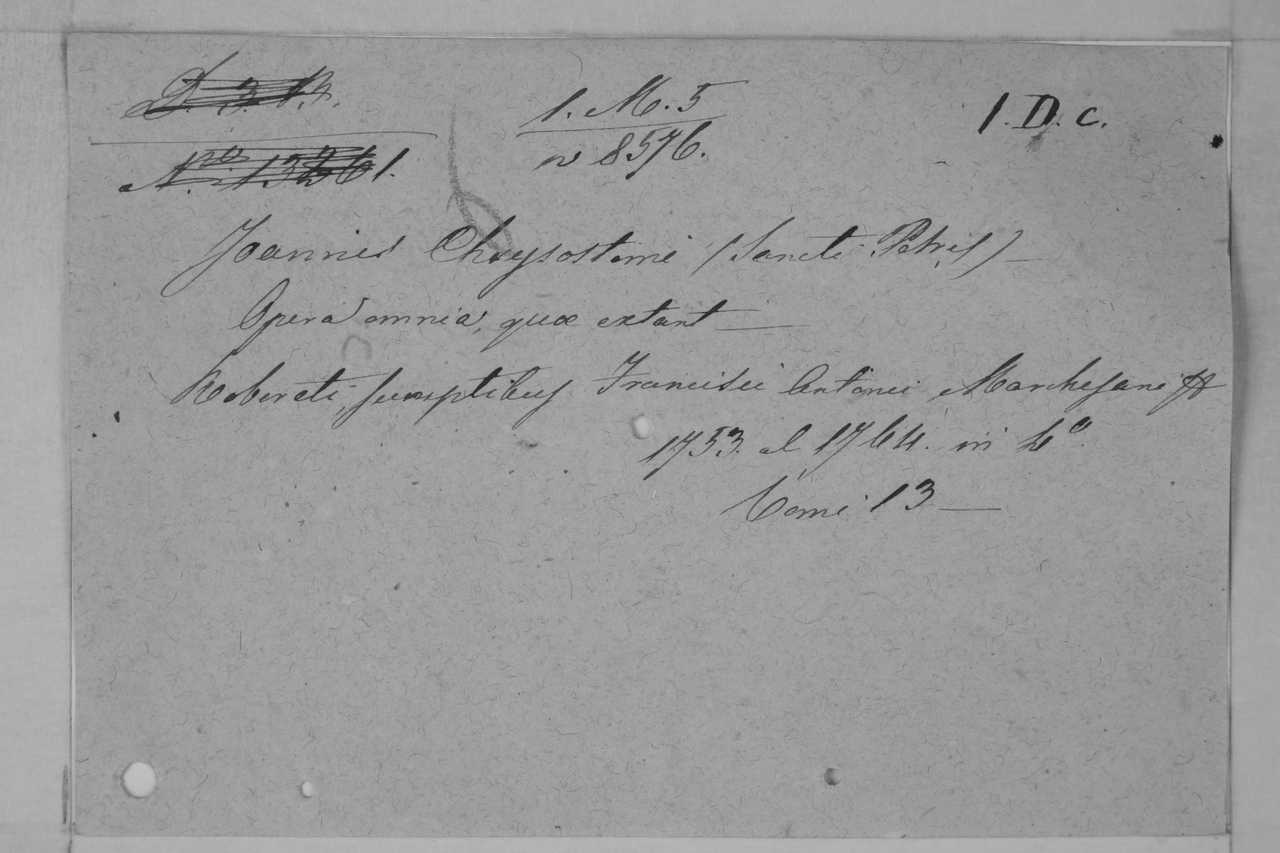 1. M. 5
n 8576.
1. D. c.
Joannis Chrysostomi (Sancti Patris)
Opera omnia, quæ extant
Roboreti, sumptibus Francisci Antonii Marchesani
1753. al 1764. in 4º.
Tomi 13